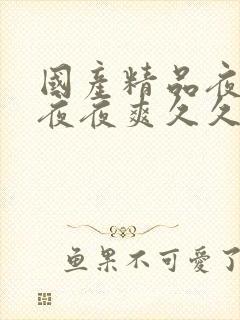 國產精品夜
夜夜爽久久
鱼果不可愛了